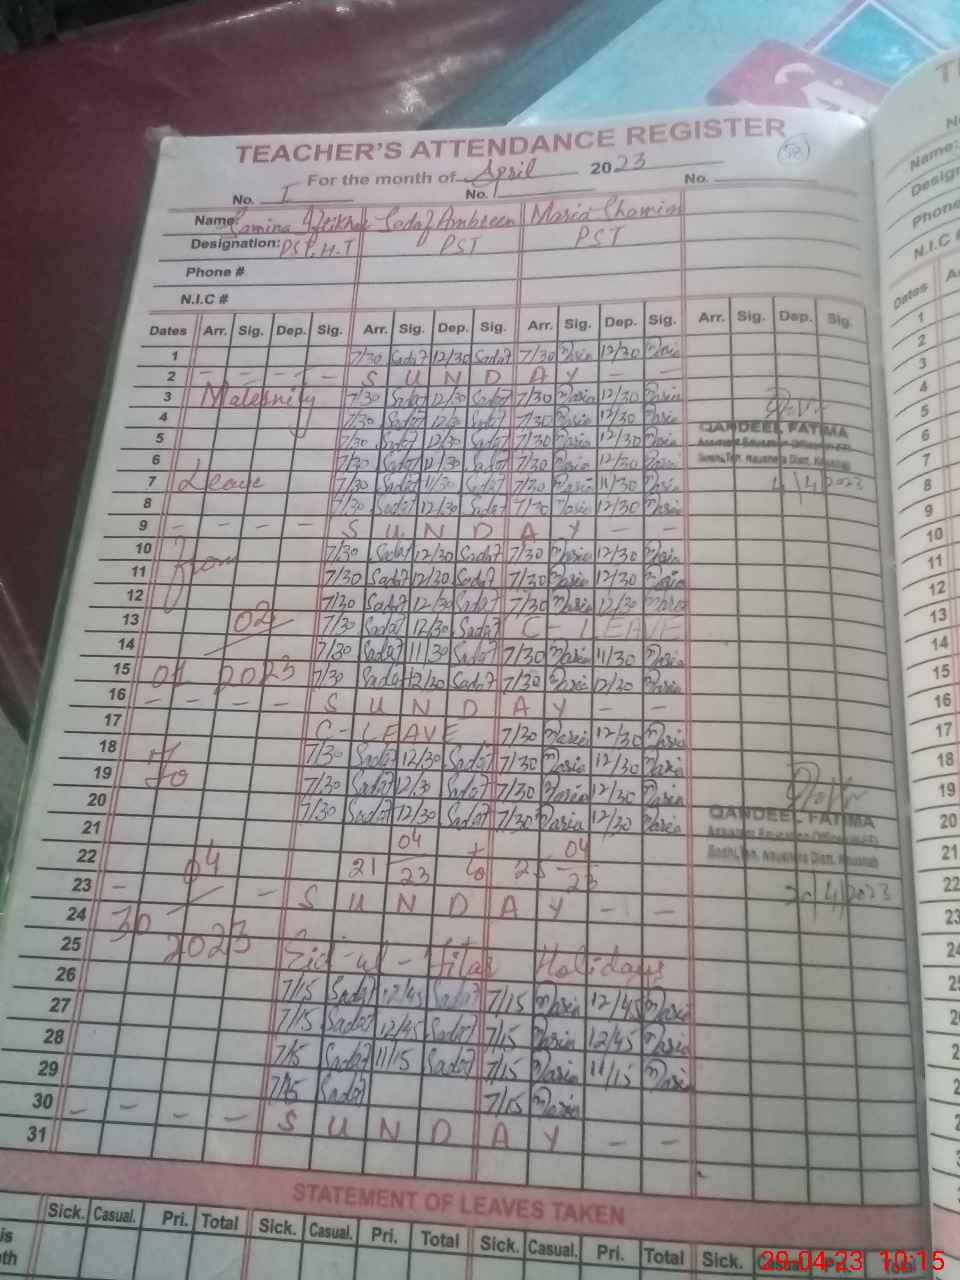 TEACHER'S ATTENDANCE REGISTER
For the month of April 2023
No. I No. No.
Name: Samina Iftikhar Sadaf Ambreen Maria Shamim
Designation: PST, H.T PST PST
Phone #
N.I.C #
Dates Arr. Sig. Dep. Sig. Arr. Sig. Dep. Sig. Arr. Sig. Dep. Sig. Arr. Sig. Dep. Sig.
1 7/30 Sadaf 12/30 Sadaf 7/30 Maria 12/30 Maria
2 - - - - S U N D A Y - -
3 Maternity 7/30 Sadaf 12/30 Sadaf 7/30 Maria 12/30 Maria
4 7/30 Sadaf 12/30 Sadaf 7/30 Maria 12/30 Maria
5 7/30 Sadaf 12/30 Sadaf 7/30 Maria 12/30 Maria QANDEEL FATIMA
6 7/30 Sadaf 12/30 Sadaf 7/30 Maria 12/30 Maria
7 Leave 7/30 Sadaf 11/30 Sadaf 7/30 Maria 11/30 Maria 4/4/2023
8 7/30 Sadaf 12/30 Sadaf 7/30 Maria 12/30 Maria
9 - - - - S U N D A Y - -
10 From 7/30 Sadaf 12/30 Sadaf 7/30 Maria 12/30 Maria
11 7/30 Sadaf 12/30 Sadaf 7/30 Maria 12/30 Maria
12 7/30 Sadaf 12/30 Sadaf 7/30 Maria 12/30 Maria
13 02 7/30 Sadaf 12/30 Sadaf C- LEAVE
14 7/30 Sadaf 11/30 Sadaf 7/30 Maria 11/30 Maria
15 01 2023 7/30 Sadaf 12/30 Sadaf 7/30 Maria 12/30 Maria
16 - - - - S U N D A Y - -
17 C- LEAVE 7/30 Maria 12/30 Maria
18 To 7/30 Sadaf 12/30 Sadaf 7/30 Maria 12/30 Maria
19 7/30 Sadaf 12/30 Sadaf 7/30 Maria 12/30 Maria
20 7/30 Sadaf 12/30 Sadaf 7/30 Maria 12/30 Maria QANDEEL FATIMA
21 04 04
22 04 21 23 to 25 23
23 - - S U N D A Y - - 20/4/2023
24 30
25 2023 Eid-ul-Fitar Holidays
26 7/15 Sadaf 12/45 Sadaf 7/15 Maria 12/45 Maria
27 7/15 Sadaf 12/45 Sadaf 7/15 Maria 12/45 Maria
28 7/15 Sadaf 11/15 Sadaf 7/15 Maria 11/15 Maria
29 7/15 Sadaf 7/15 Maria
30 - - - - S U N D A Y - -
31
STATEMENT OF LEAVES TAKEN
Sick. Casual. Pri. Total Sick. Casual. Pri. Total Sick. Casual. Pri. Total Sick. Casual. Pri. Total
Name:
Phone
N.I.C #
Dates
1
2
3
4
5
6
7
8
9
10
11
12
13
14
15
16
17
18
19
20
21
22
23
24
29-04-23 10:15